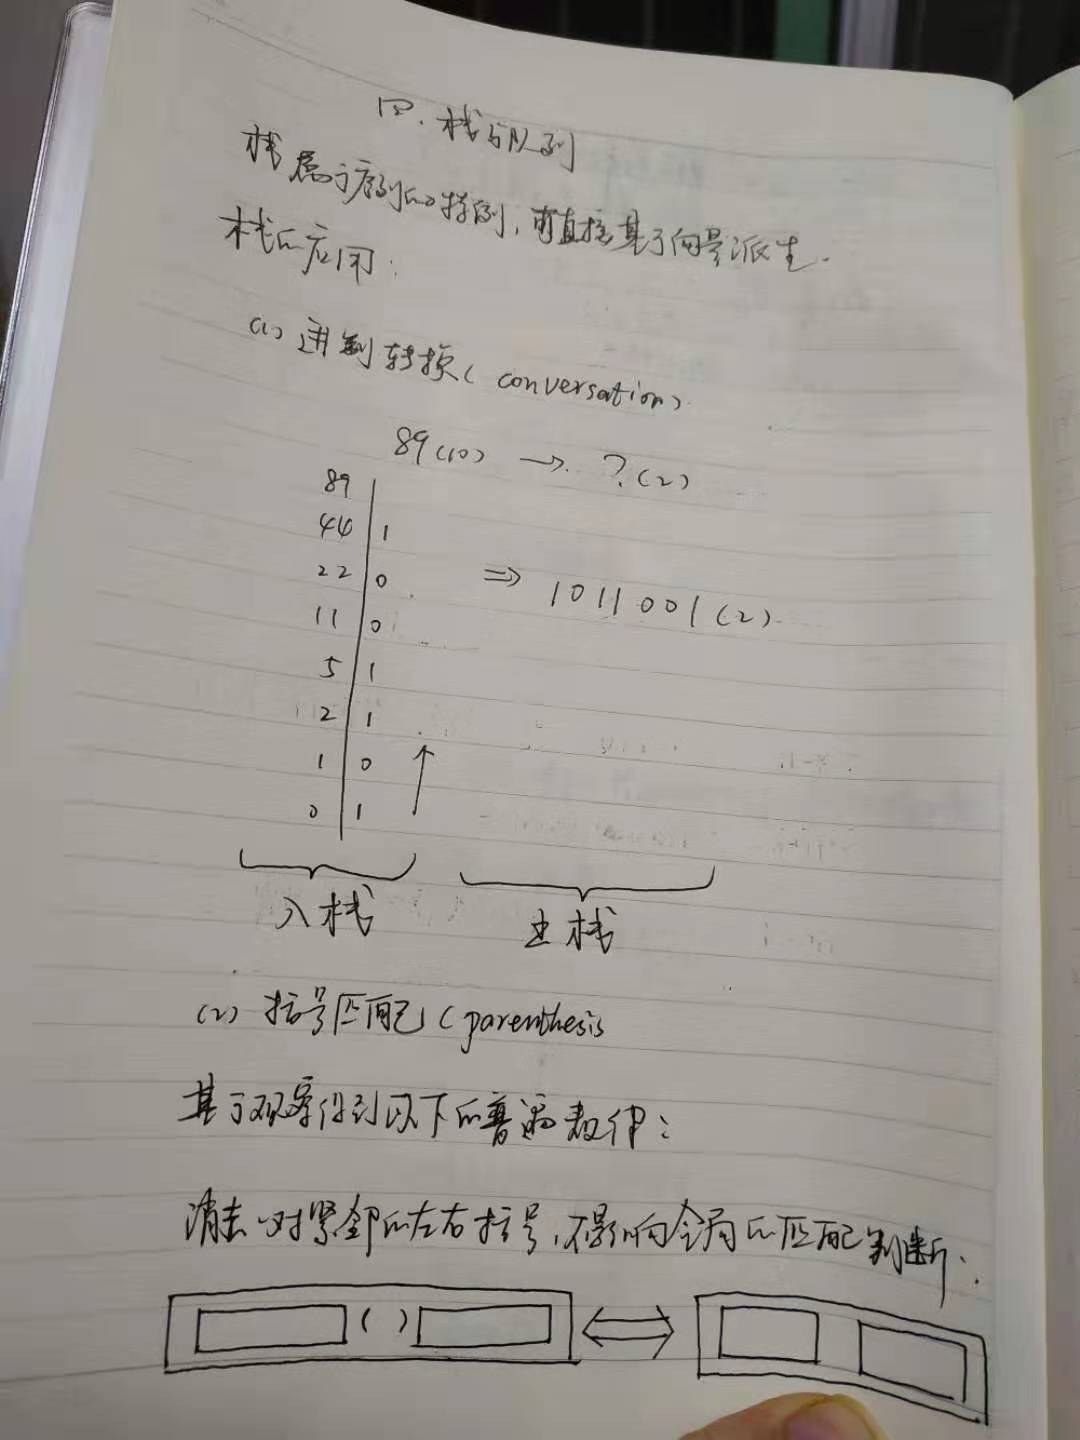 四. 栈与队列
栈属于序列的特例,可直接基于向量派生.
栈的应用:
(1) 进制转换( conversation)
89(10) → ?(2)
89
44 1
22 0 ⇒ 1011001(2)
11 0
5 1
2 1
1 0 ↑
0 1
入栈 出栈
(2) 括号匹配(parenthesis
基于观察得到以下的普遍规律:
消去一对紧邻的左右括号,不影响全局的匹配判断.
( )